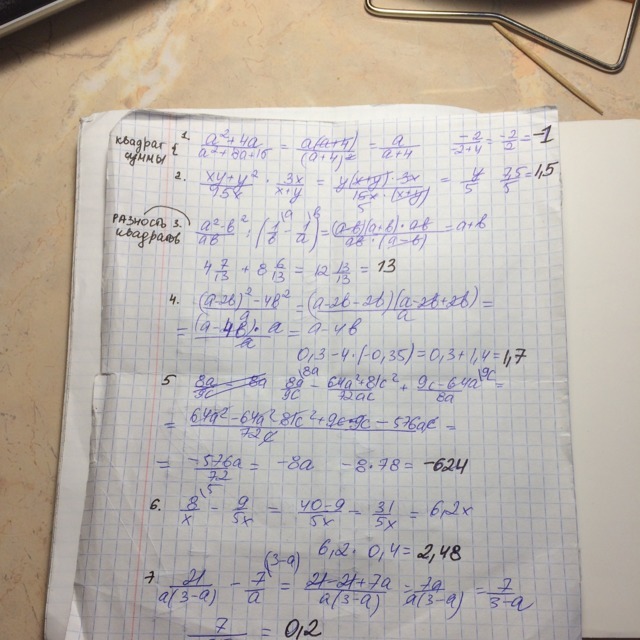 квадрат суммы 1. (a²+4a)/(a²+8a+16) = a(a+4)/(a+4)² = a/(a+4) -2/(-2+4) = -2/2 = -1
2. (xy+y²)/15x · 3x/(x+y) = y(x+y)·3x/15x·(x+y) = y/5 7,5/5 = 1,5
разность квадратов 3. (a²-b²)/ab : (1/b - 1/a) = (a-b)(a+b)·ab/ab·(a-b) = a+b
4 7/13 + 8 6/13 = 12 13/13 = 13
4. ((a-2b)²-4b²)/a = (a-2b-2b)(a-2b+2b)/a =
= (a-4b)·a/a = a-4b
0,3-4·(-0,35)=0,3+1,4=1,7
5 8a/9c - (64a²+81c²)/72ac + (9c-64a)/8a =
= (64a²-64a²-81c²+9c·9c-576ac)/72c =
= -576a/72 = -8a -8·78= -624
6. 8/x - 9/5x = (40-9)/5x = 31/5x = 6,2x
6,2·0,4=2,48
7. 21/a(3-a) - 7/a = (21-21+7a)/a(3-a) = 7a/a(3-a) = 7/(3-a)
7 = 0,2